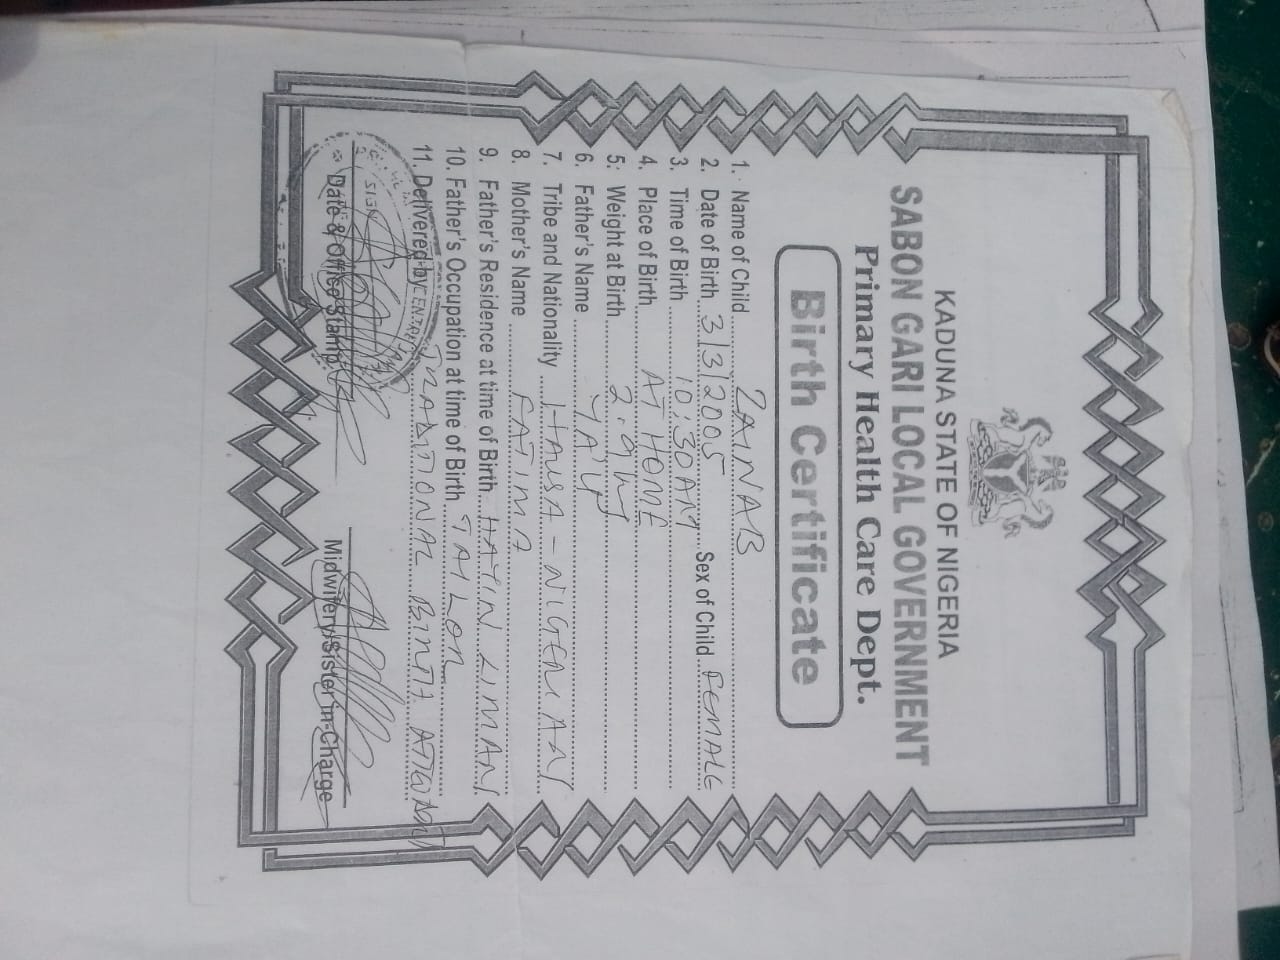 KADUNA STATE OF NIGERIA
SABON GARI LOCAL GOVERNMENT
Primary Health Care Dept.
Birth Certificate
1. Name of Child ZAINAB
2. Date of Birth 3/3/2005 Sex of Child FEMALE
3. Time of Birth 10:30AM
4. Place of Birth AT HOME
5. Weight at Birth 2.9
6. Father's Name
7. Tribe and Nationality HAUSA - NIGERIAN
8. Mother's Name FATIMA
9. Father's Residence at time of Birth LIMAN
10. Father's Occupation at time of Birth TAILOR
11. Delivered by TRADITIONAL BIRTH
SIGN
Date & Office Stamp
Midwifery/Sister in-Charge